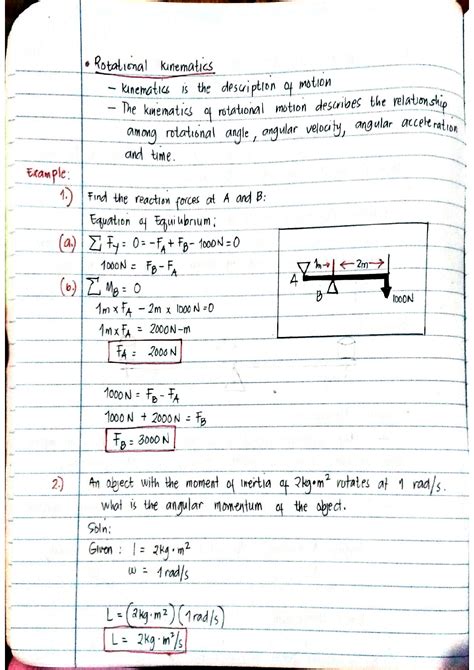 • Rotational Kinematics
– Kinematics is the description of motion
– The kinematics of rotational motion describes the relationship
among rotational angle, angular velocity, angular acceleration
and time.
Example:
1.) Find the reaction forces at A and B:
Equation of Equilibrium;
(a.) ∑ Fy = 0 = -FA + FB - 1000N = 0
1000N = FB - FA
(b.) ∑ MB = 0
1m x FA - 2m x 1000N = 0
1m x FA = 2000N-m
FA = 2000N
1m 2m
A
B
1000N
1000N = FB - FA
1000N + 2000N = FB
FB = 3000N
2.) An object with the moment of inertia of 2kg·m² rotates at 1 rad/s.
what is the angular momentum of the object.
Soln:
Given : I = 2kg·m²
w = 1 rad/s
L = (2kg·m²)(1 rad/s)
L = 2kg·m²/s